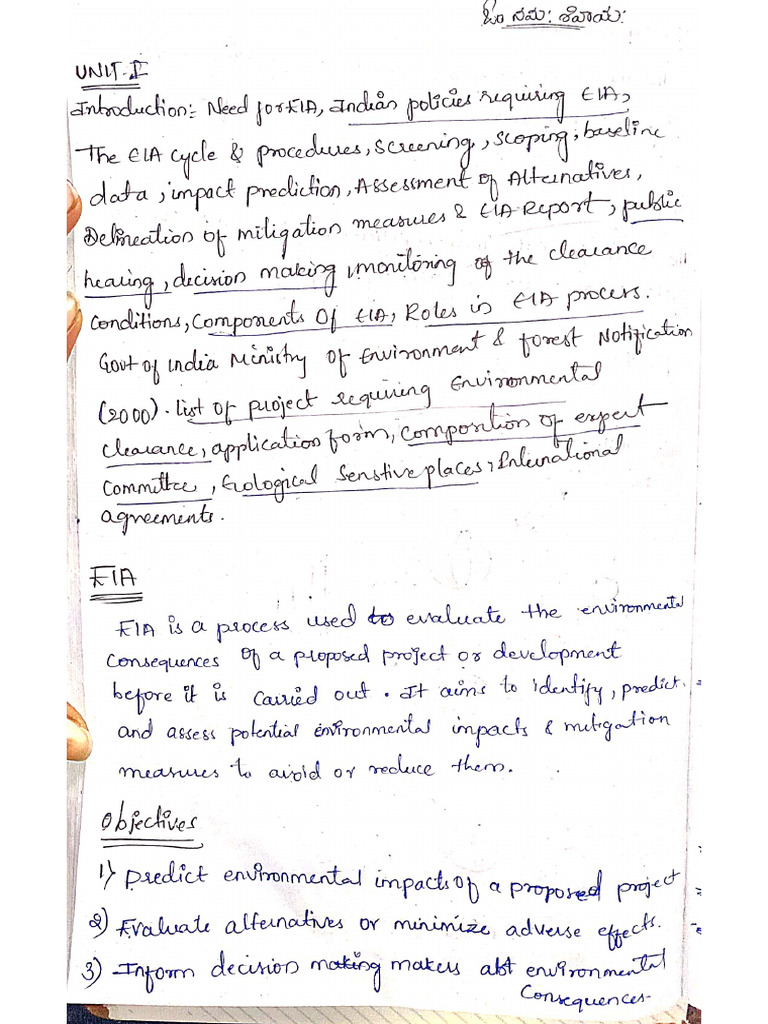 ಓಂ ನಮಃ ಶಿವಾಯಃ
UNIT-I
Introduction: Need for EIA, Indian policies requiring EIA,
The EIA cycle & procedures, screening, scoping, baseline
data, impact prediction, Assessment of Alternatives,
Delineation of mitigation measures & EIA Report, public
hearing, decision making, monitoring of the clearance
conditions, components of EIA, Roles in EIA process.
Govt of India Ministry of Environment & forest Notification
(2000). List of project requiring Environmental
clearance, application form, composition of expert
committee, Ecological Senstive places, International
agreements.
EIA
EIA is a process used to evaluate the environmental
consequences of a proposed project or development
before it is carried out. It aims to identify, predict
and assess potential environmental impacts & mitigation
measures to avoid or reduce them.
Objectives
1) Predict environmental impacts of a proposed project
2) Evaluate alternatives or minimize adverse effects.
3) Inform decision making makers abt environmental
Consequences.